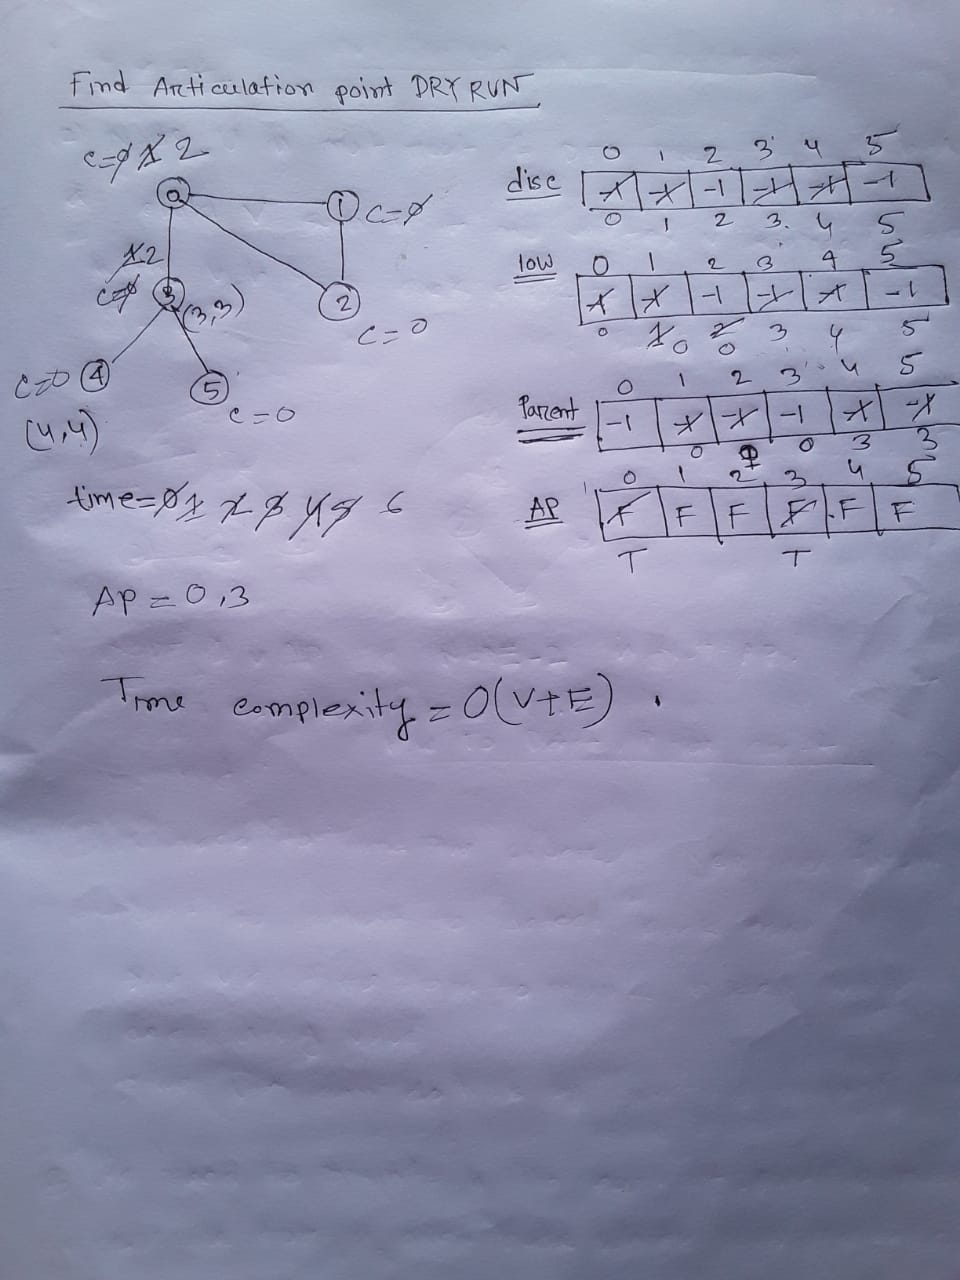 Find Articulation point DRY RUN
c=0 1 2
0
1 c=0
1 2
c=0 3 (3,3)
2
c=0
c=0 4
(4,4)
5
c=0
time=0 1 2 3 4 5 6
AP = 0,3
Time complexity = O(V+E) .
0 1 2 3 4 5
disc -1 -1 -1 -1 -1 -1
0 1 2 3. 4 5
low 0 1 2 3 4 5
-1 -1 -1 -1 -1 -1
0 1 0 2 0 3 4 5
0 1 2 3 4 5
Parent -1 -1 -1 -1 -1 -1
0 1 0 3 3
0 1 2 3 4 5
AP F F F F F F
T T